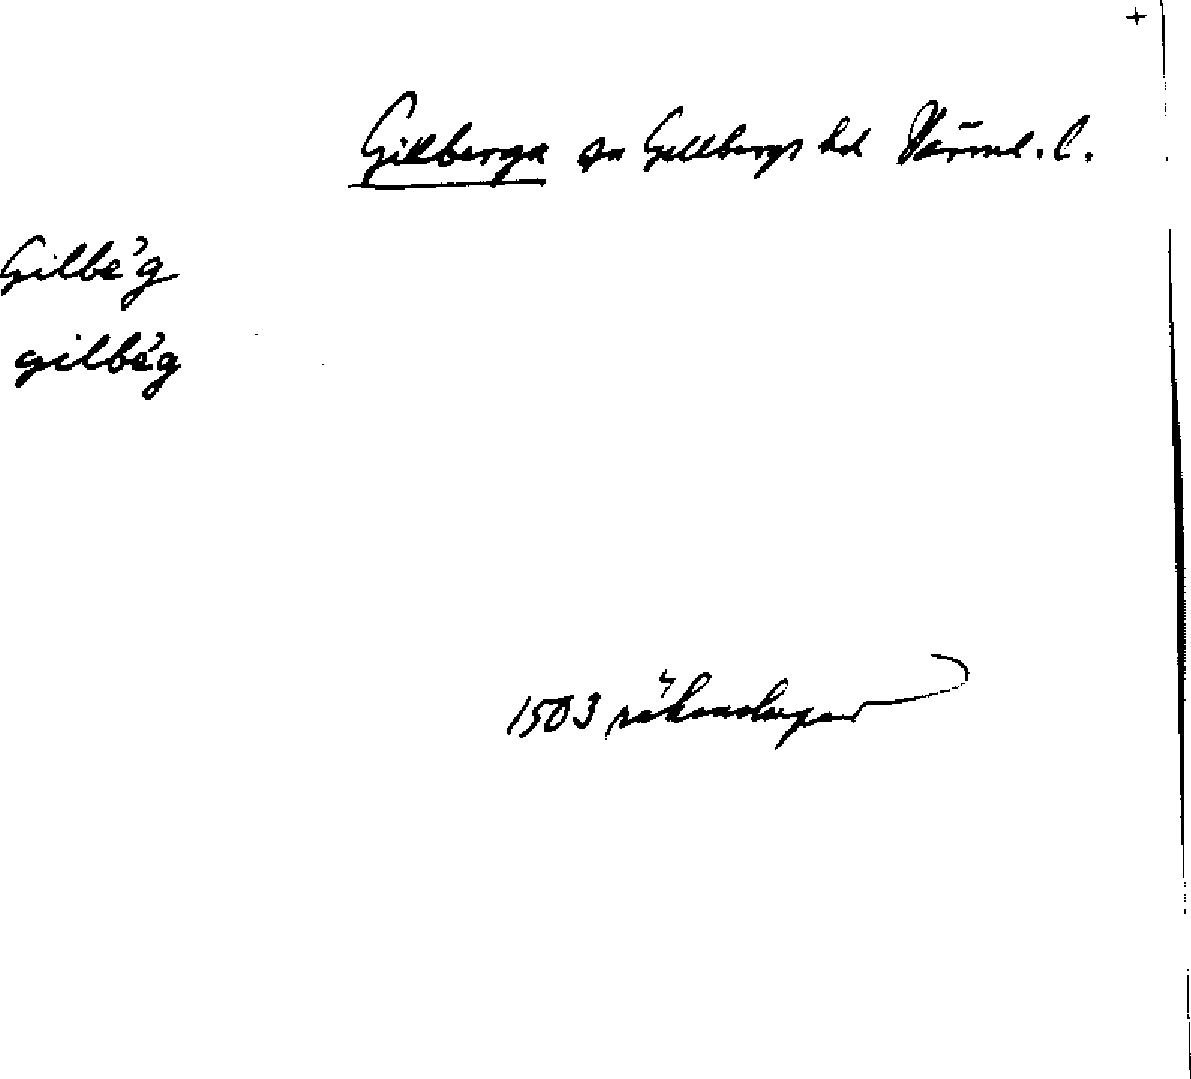 +
Gillberga sn Gillbergs hd Värml. l.
Gilbe'g
gilbe'g
1503 räkenskaper